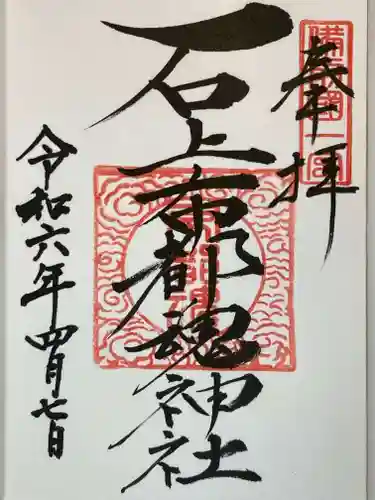 奉拝
備前國一宮
石上布都魂神社
令和六年四月七日